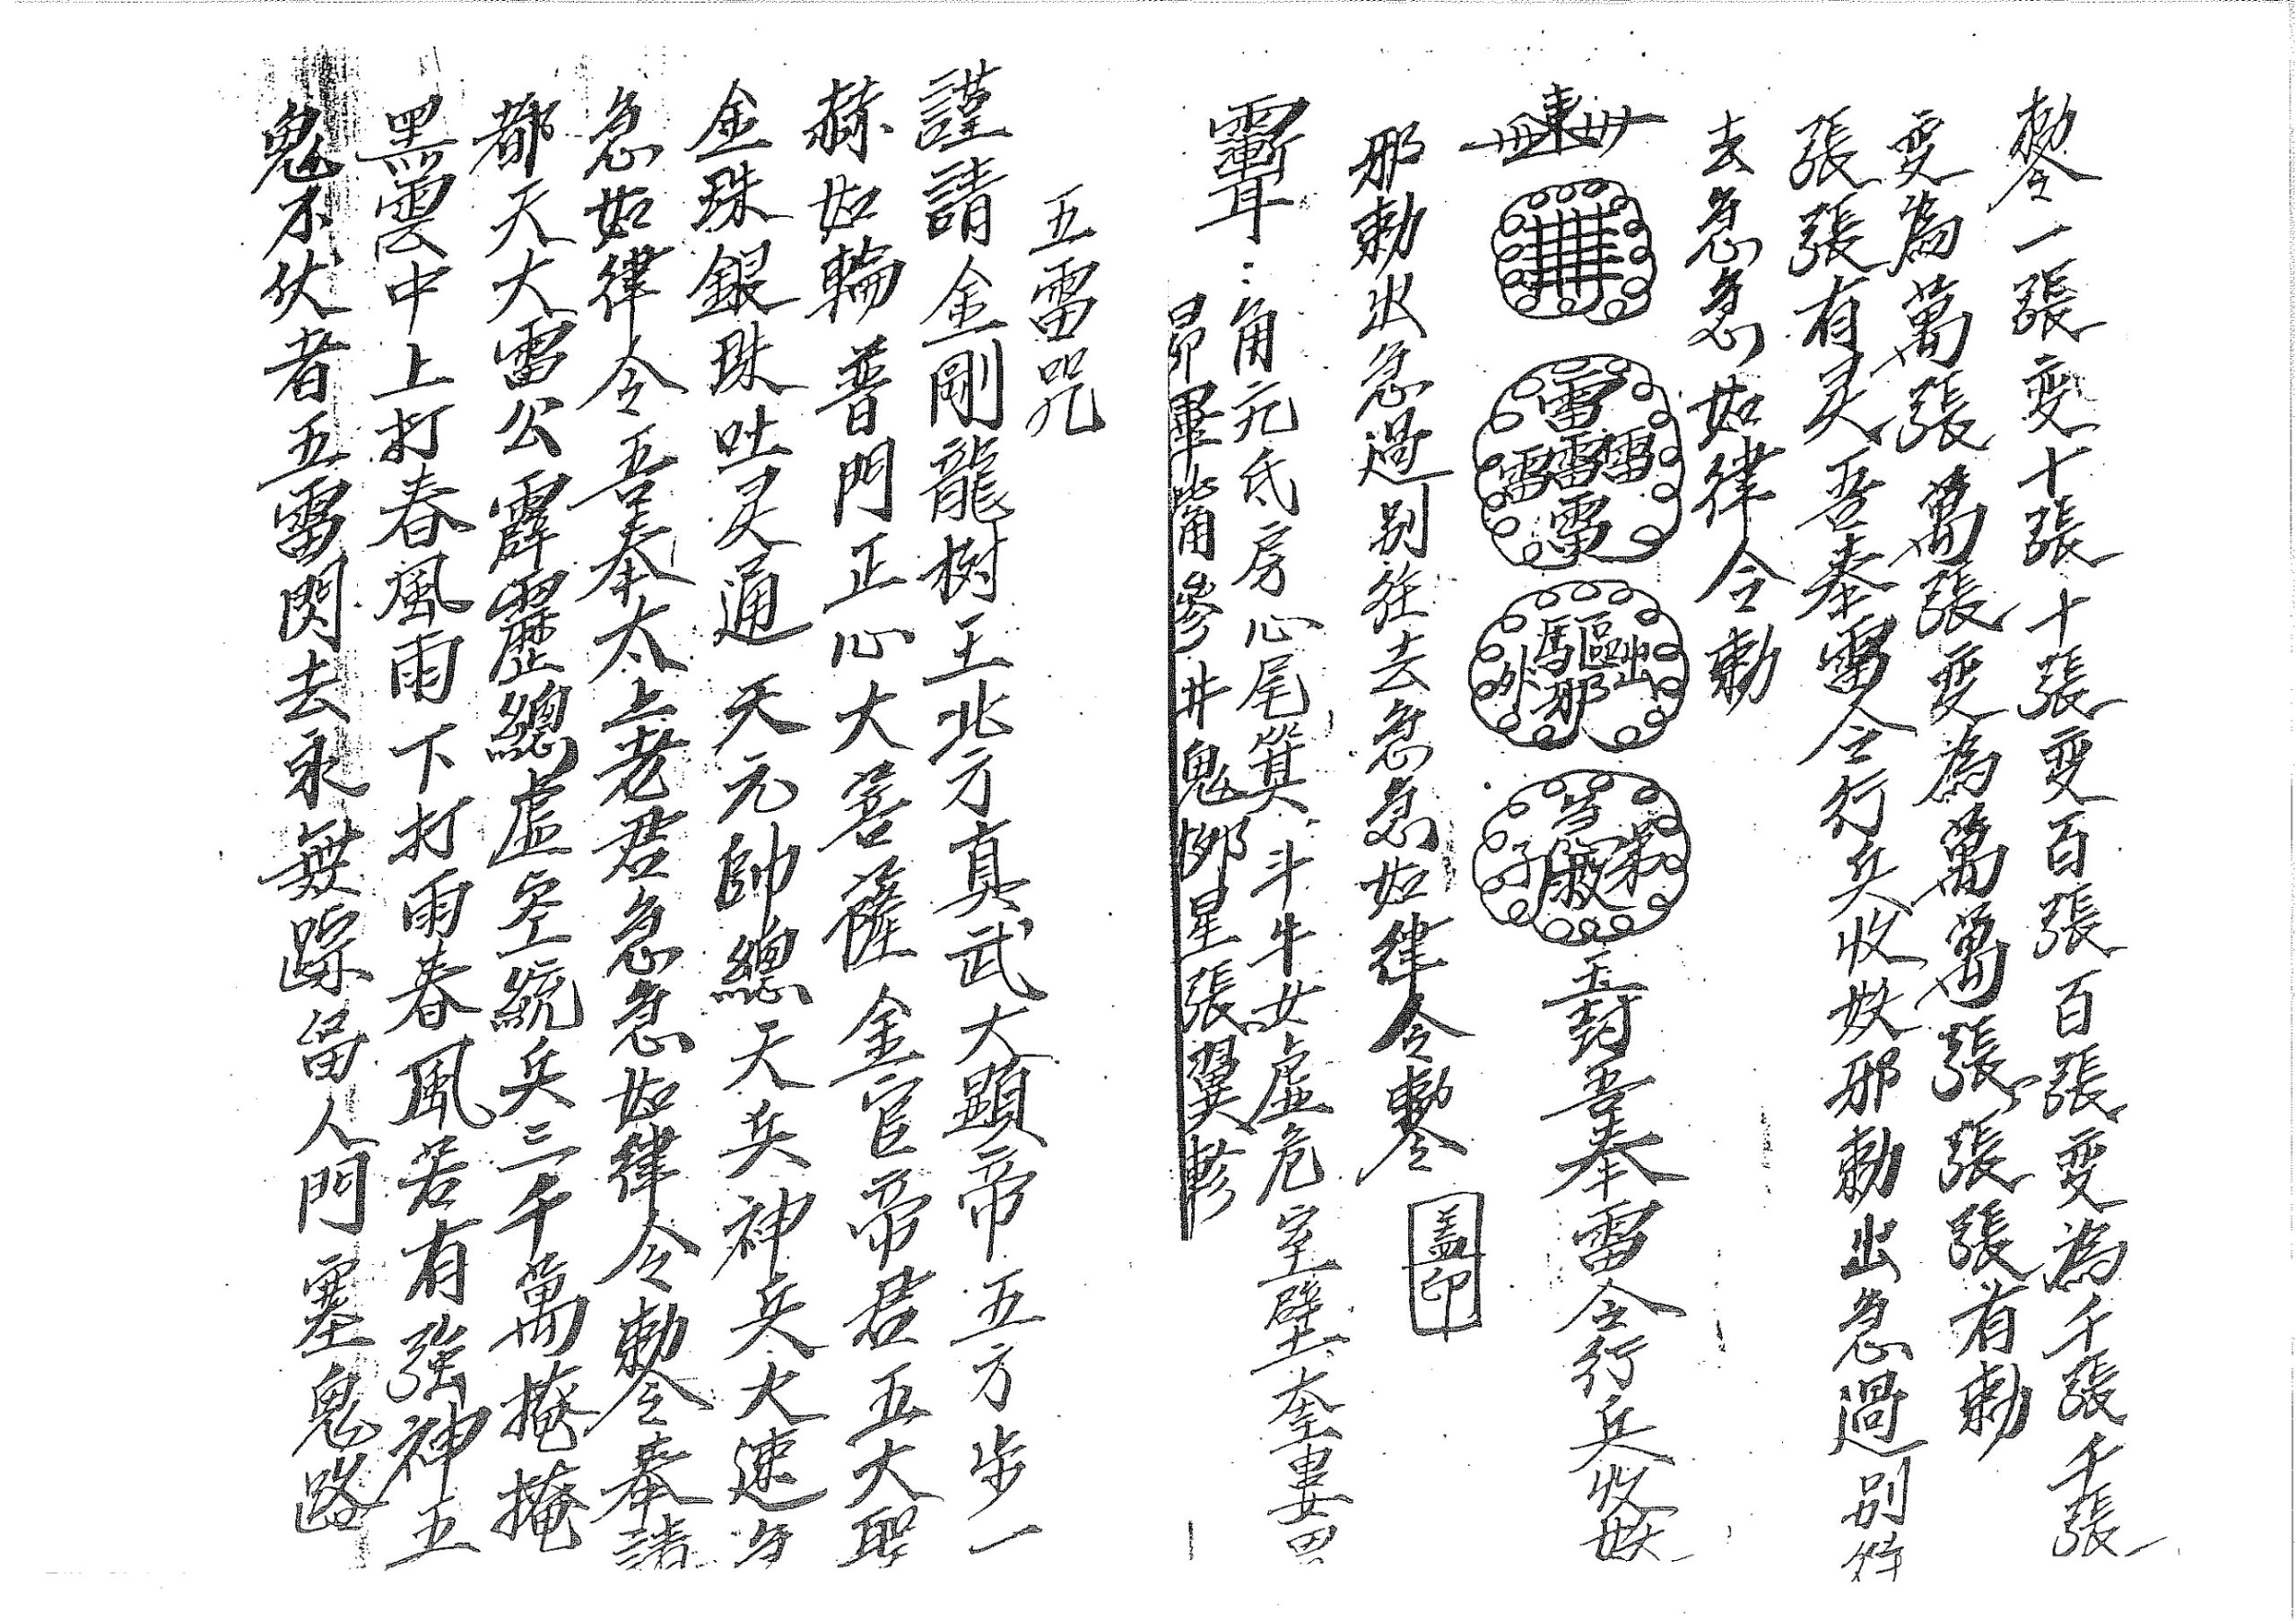 勅令一張変十張十張変百張百張変為千張千張
変為萬張萬張変為萬萬張張張有勅
張張有灵吾奉雷令行兵收妖邪勅出急過別往
去急急如律令勅
雷雷雷雷雷
驅出外邪
封吾奉雷令行兵收妖
邪勅出急過別往去急急如律令勅令
蓋印
角亢氐房心尾箕斗牛女虛危室壁奎婁胃
昴畢觜參井鬼柳星張翼軫
五雷咒
謹請金剛龍樹王北方真武大顕帝五方步一
赫如輪普門正心大菩薩金官帝君五大聖
金珠銀珠吐灵通天元帥總天兵神兵火速
急如律令吾奉太上老君急急如律令勅令奉請
都天大雷公霹靂總虛空統兵三千萬掩掩
黑雲中上打春風雨下打雨春風若有強神五
鬼不伏者五雷閃去永無踪留人門塞鬼路